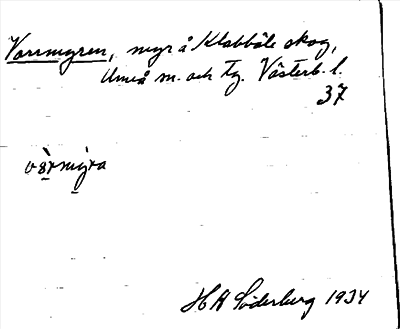 Varrmyren, myr å Klabböle skog,
Umeå sn. och tg. Västerb. l.
37
vàrmyra
HA Söderberg 1934